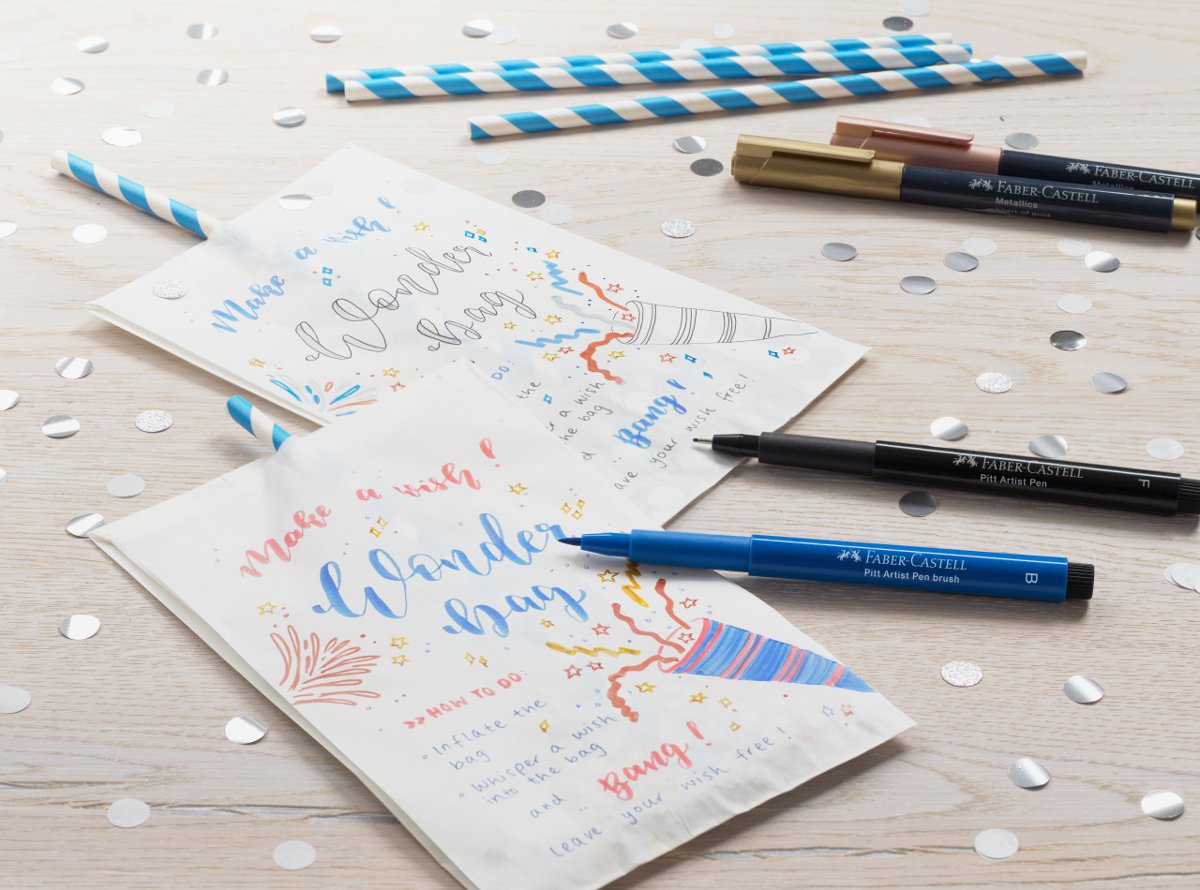 FABER-CASTELL
Metallics
FABER-CASTELL
Metallics
Make a wish!
Wonder
Bag
DO:
the
a wish
the bag
Bang!
your wish free!
FABER-CASTELL
Pitt Artist Pen
F
FABER-CASTELL
Pitt Artist Pen brush
B
Make a wish!
Wonder
Bag
>> HOW TO DO:
• Inflate the
bag
• Whisper a wish
into the bag
and .. Bang!
leave your wish free!